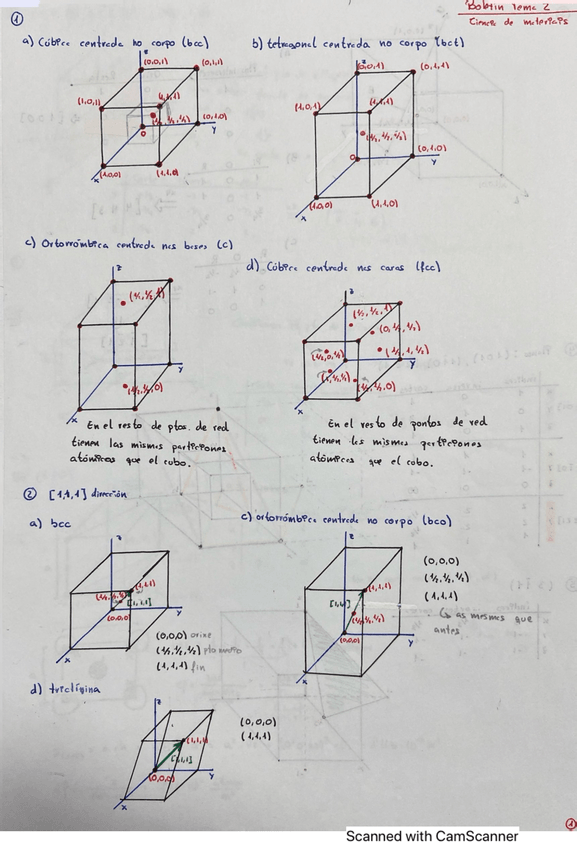 Boletín Tema 2
Ciencia de materiais
①
a) Cúbica centrada no corpo (bcc)
b) tetragonal centrada no corpo (bct)
z
(0,0,1)
(0,1,1)
(1,0,1)
(1,1,1)
(½,½,½)
0
(0,1,0)
y
x
(1,0,0)
(1,1,0)
z
(0,0,1)
(0,1,1)
(1,0,1)
(1,1,1)
(½,½,½)
0
(0,1,0)
y
x
(1,0,0)
(1,1,0)
c) Ortorrómbica centrada nas bases (c)
d) Cúbica centrada nas caras (fcc)
z
(½,½,1)
y
(½,½,0)
x
z
(½,½,1)
(0,½,½)
(½,0,½)
(½,1,½)
(1,½,½)
(½,½,0)
y
x
En el resto de ptos. de red
tienen las mismas particiones
atómicas que el cubo.
En el resto de pontos de red
tienen las mismas particiones
atómicas que el cubo.
② [1,1,1] dirección
a) bcc
c) ortorrómbica centrada no corpo (bco)
z
(1,1,1)
(½,½,½)
[1,1,1]
(0,0,0)
y
x
(0,0,0) orixe
(½,½,½) pto medio
(1,1,1) fin
z
(1,1,1)
[1,1,1]
(½,½,½)
(0,0,0)
y
x
(0,0,0)
(½,½,½)
(1,1,1)
↳ as mesmas que
antes
d) triclínina
z
(1,1,1)
[1,1,1]
(0,0,0)
y
x
(0,0,0)
(1,1,1)
①
Scanned with CamScanner